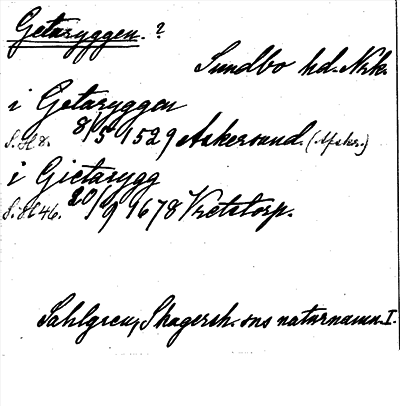 Getaryggen. ?
Sundbo hd. Nrk.
i Getaryggen
S. H 8. 8/5 1529 Askersund. (Afskr.)
i Gietarygg
S. H 46. 20/9 1678 Vretstorp.
Sahlgren, Skagersh. sns naturnamn. I.